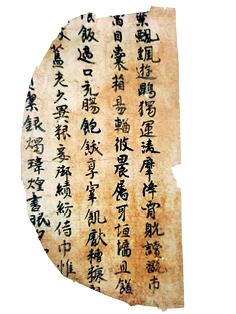 葉飄颻遊鵾獨運淩摩絳霄躭讀翫市
寓目囊箱易輶攸畏屬耳垣墻且饍
飯適口充腸飽飫享宰飢猒糟糠
老少異粮妾御績紡侍巾帷
潔銀燭煒煌晝眠